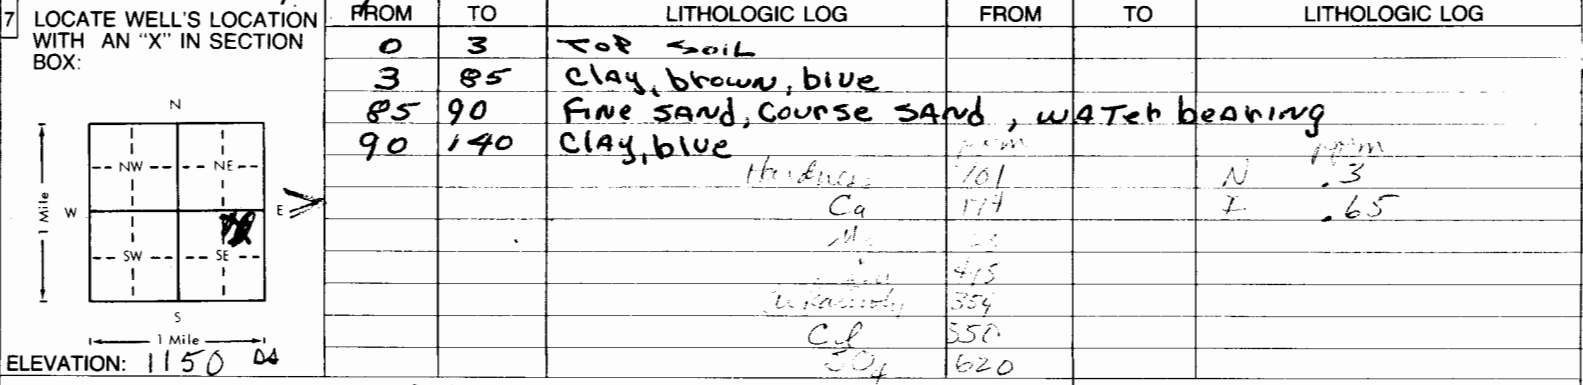 7 LOCATE WELL'S LOCATION WITH AN "X" IN SECTION BOX:
N
NW NE
W E
SW SE
S
1 Mile
1 Mile
ELEVATION: 1150
FROM TO LITHOLOGIC LOG FROM TO LITHOLOGIC LOG
0 3 TOP SOIL
3 85 Clay, brown, blue
85 90 FINE SAND, COURSE SAND, WATER beARING
90 140 CLAY, blue
ppm ppm
Hardness 701 N .3
Ca 174 .65
415
354
Cl 550
SO4 620